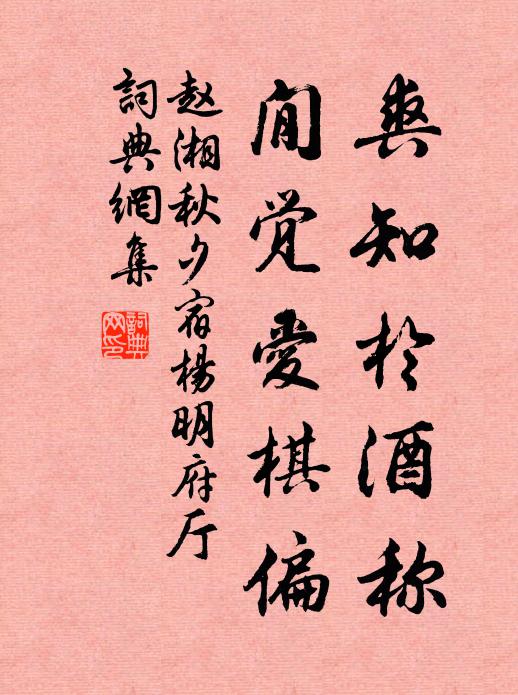 爽知於酒称
闲觉爱棋偏
赵湘秋夕宿杨明府厅
詞典網集
詞典
网印